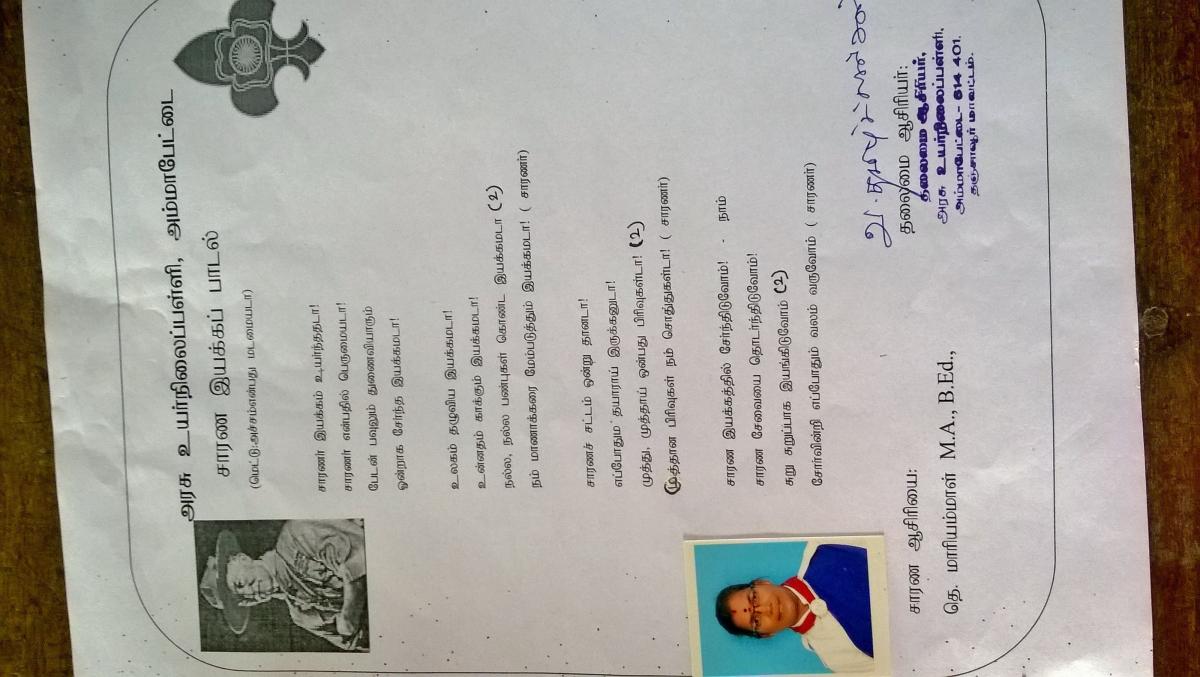 அரசு உயர்நிலைப்பள்ளி, அம்மாபேட்டை
சாரண இயக்கப் பாடல்
(மெட்டு:அச்சம்என்பது மடமையடா)
சாரணர் இயக்கம் உயர்ந்ததடா!
சாரணர் என்பதில் பெருமையடா!
பேடன் பவுலும் துணைவியாரும்
ஒன்றாக சேர்ந்த இயக்கமடா!
உலகம் தழுவிய இயக்கமடா!
உன்னதம் காக்கும் இயக்கமடா!
நல்ல, நல்ல பண்புகள் கொண்ட இயக்கமடா (2)
நம் மாணாக்கரை மேம்படுத்தும் இயக்கமடா! ( சாரணர்)
சாரணச் சட்டம் ஒன்று தானடா!
எப்போதும் தயாராய் இருக்கனுடா!
முத்து, முத்தாய் ஒன்பது பிரிவுகள்டா! (2)
முத்தான பிரிவுகள் நம் சொத்துகள்டா! ( சாரணர்)
சாரண இயக்கத்தில் சேர்ந்திடுவோம்! - நாம்
சாரண சேவையை தொடர்ந்திடுவோம்!
சுறு சுறுப்பாக இயங்கிடுவோம் (2)
சோர்வின்றி எப்போதும் வலம் வருவோம் ( சாரணர்)
சாரண ஆசிரியை:
தெ. மாரியம்மாள் M.A., B.Ed.,
தலைமை ஆசிரியர்:
தலைமை ஆசிரியர்,
அரசு உயர்நிலைப்பள்ளி,
அம்மாபேட்டை- 614 401.
தஞ்சாவூர் மாவட்டம்.